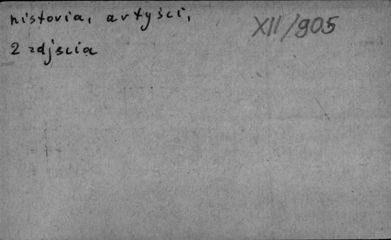 historia, artyści,
XII/905
2 zdjęcia